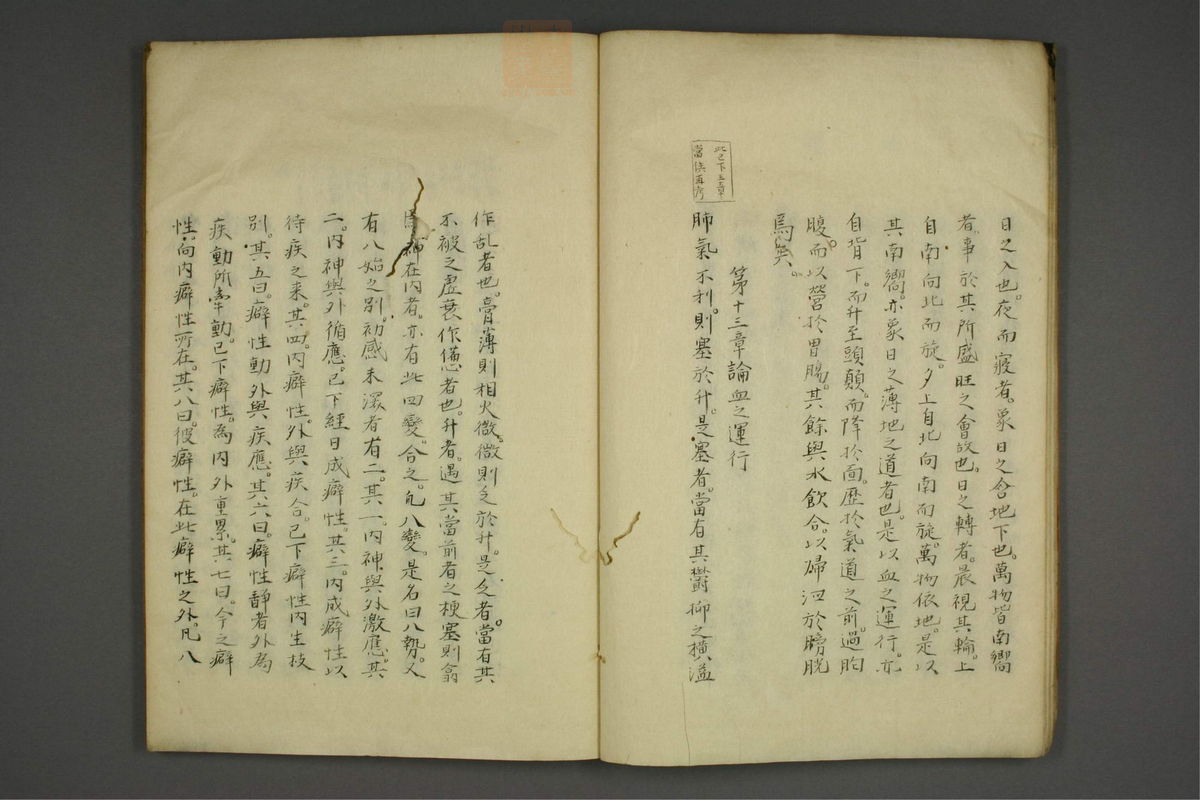 日之入也。夜而寢者。象日之含地下也。萬物皆南嚮
者。事於其所盛旺之會故也。日之轉者。晨視其輪。上
自南向北而旋。夕上自北向南而旋。萬物依地。是以
其南嚮。亦象日之薄地之道者也。是以血之運行。亦
自背下。而升至頭顛。而降於面。歷於氣道之前。過胸
腹。而以營於胃腸。其餘與水飲合。以歸泗於膀胱
焉矣。
第十三章論血之運行
此已下三章
當俟再考
肺氣不利。則塞於升。是塞者。當有其鬱抑之橫溢
作乱者也。膏薄則相火微。微則乏於升。是乏者。當有其
不被之虛衰作憊者也。升者。遇其當前者之梗塞則翕
神在内者。亦有此四變。合之。凡八變。是名曰八勢。又
有八始之別。初感未深者有二。其一。内神與外激應。其
二。内神與外循應。已下經日成癖性。其三。内成癖性以
待疾之来。其四。内癖性。外與疾合。已下癖性内生枝
別。其五曰。癖性動外與疾應。其六曰。癖性靜者外為
疾動所牽動。已下癖性。為内外重累。其七曰。今之癖
性。向内癖性所在。其八曰。彼癖性。在此癖性之外。凡八